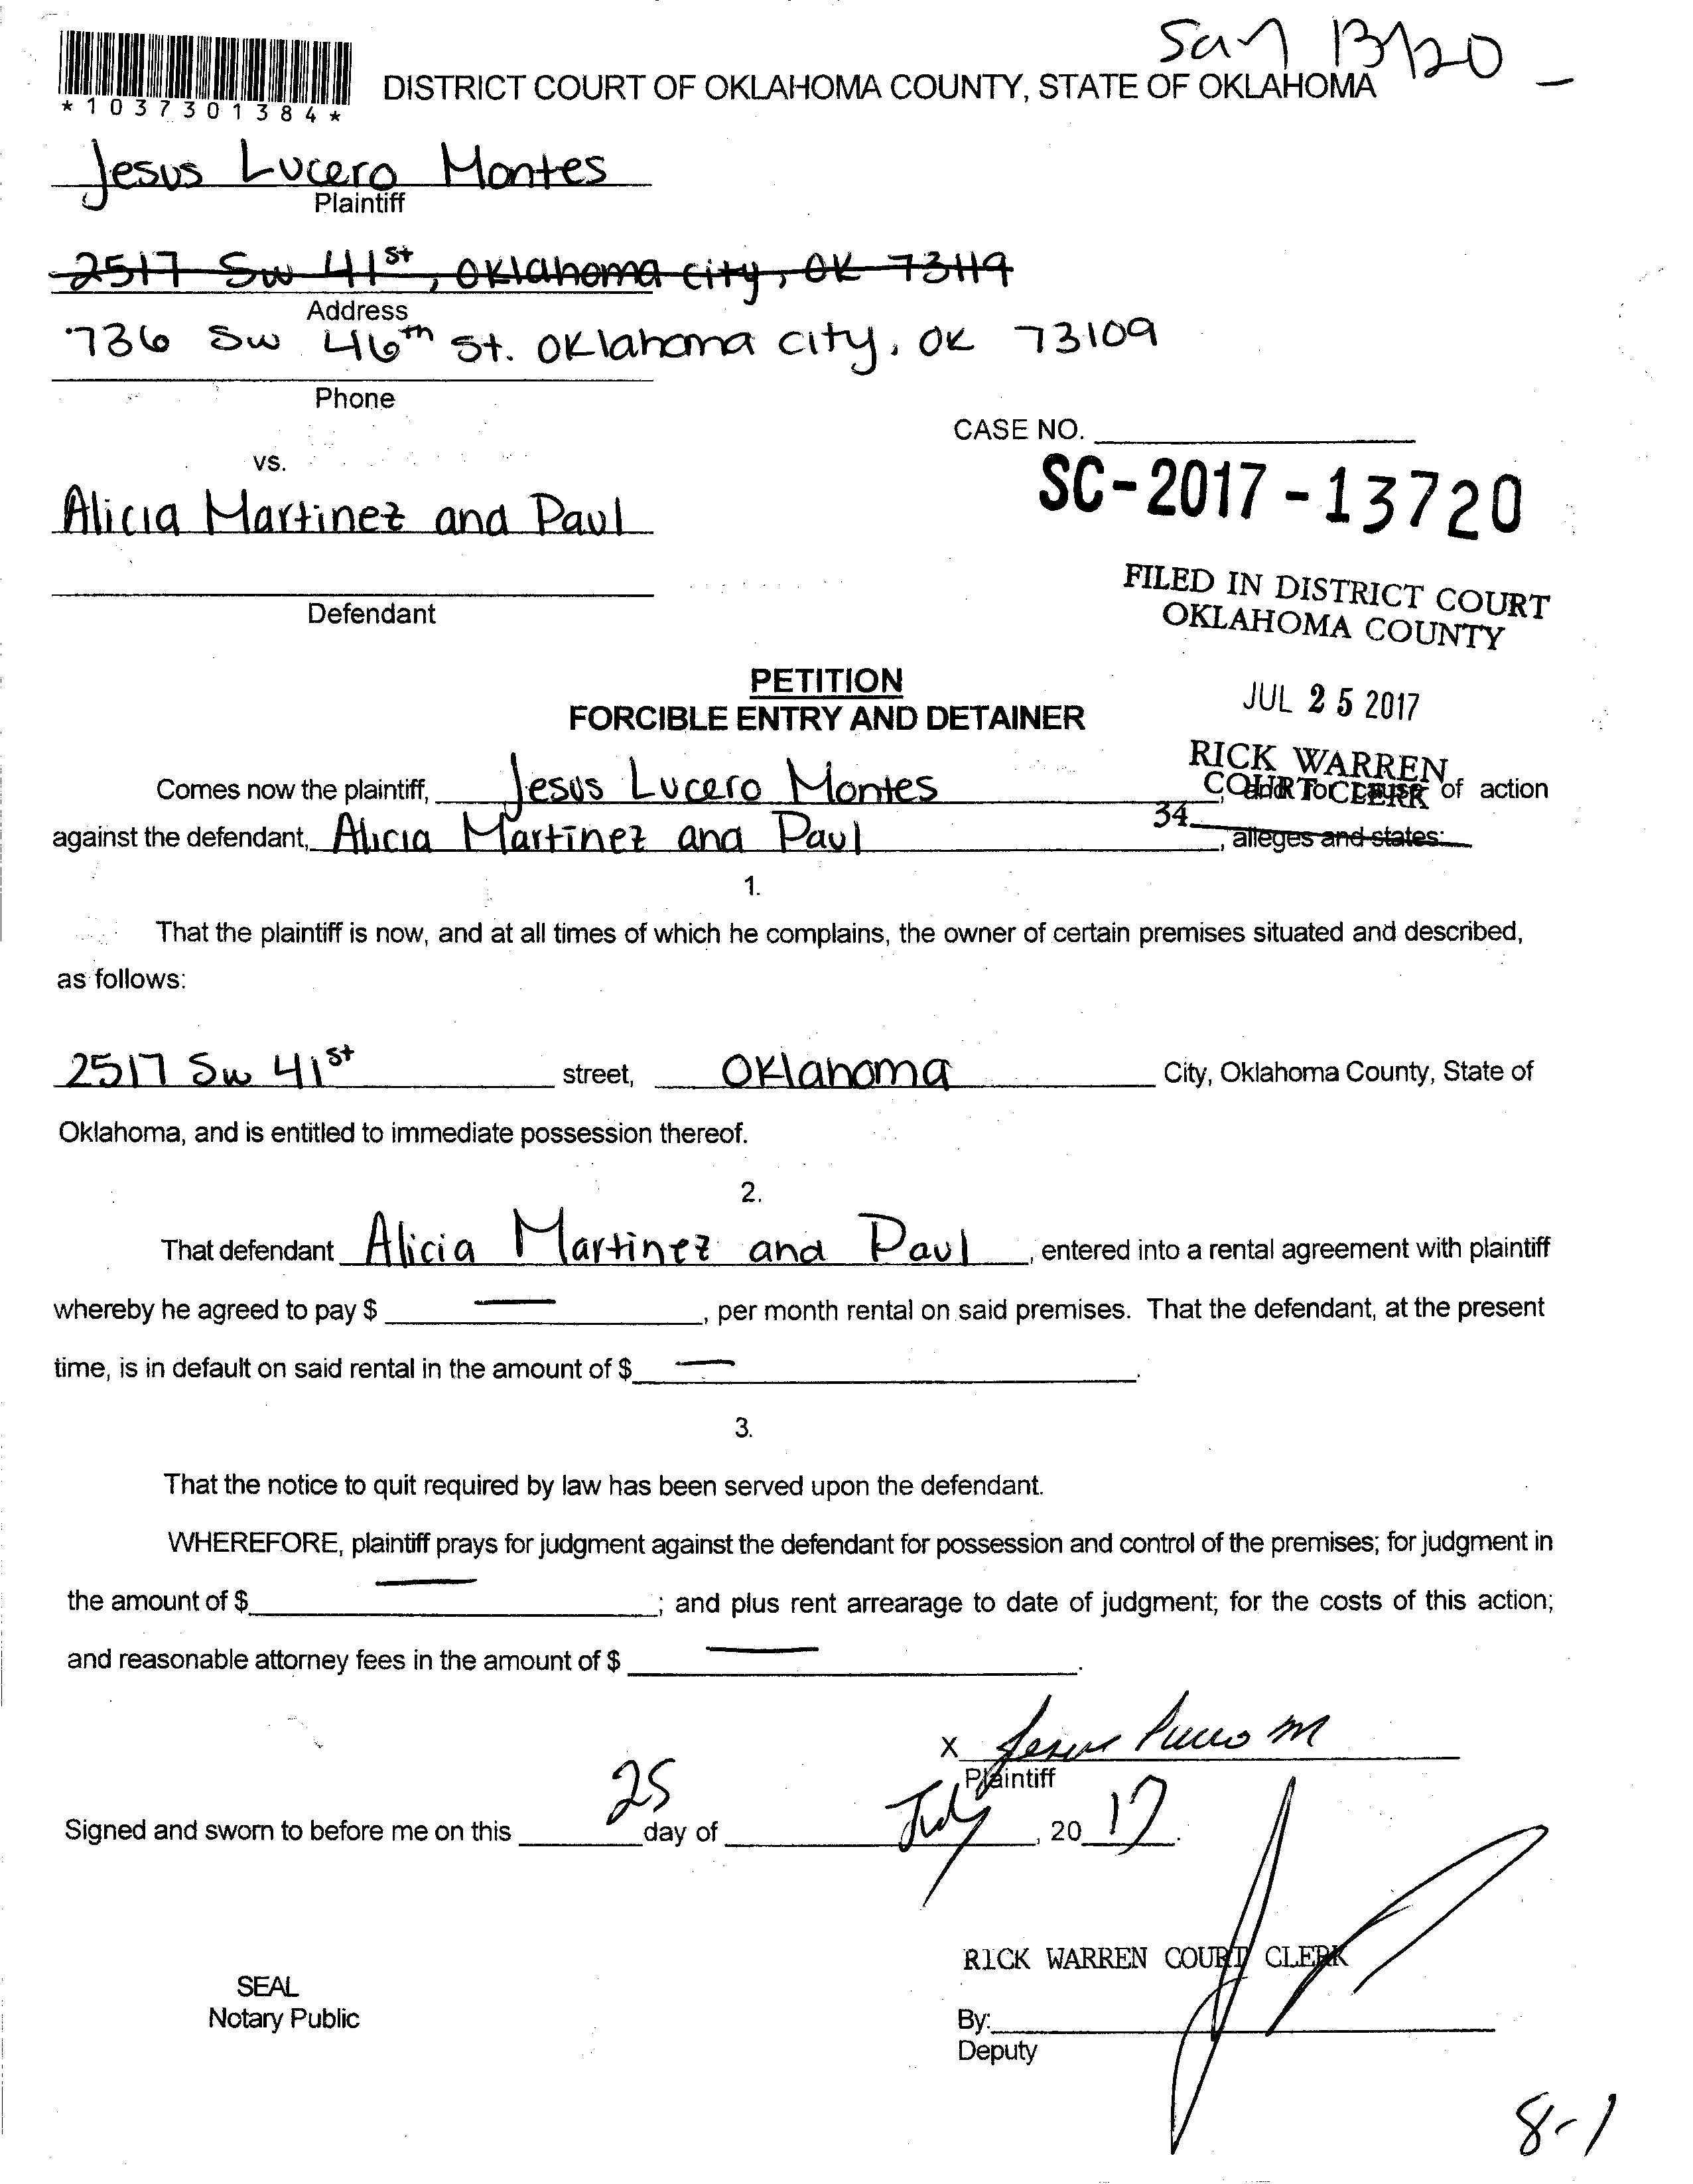 *1037301384*
DISTRICT COURT OF OKLAHOMA COUNTY, STATE OF OKLAHOMA
Jesus Lucero Montes
Plaintiff
2517 SW 41st, Oklahoma city, OK 73119
Address
736 SW 46th St. Oklahoma city, OK 73109
Phone
CASE NO.
vs.
SC-2017-13720
Alicia Martinez and Paul
FILED IN DISTRICT COURT
OKLAHOMA COUNTY
Defendant
PETITION
FORCIBLE ENTRY AND DETAINER
JUL 25 2017
RICK WARREN
COURT CLERK
Comes now the plaintiff, Jesus Lucero Montes, and for cause of action
34
against the defendant, Alicia Martinez and Paul, alleges and states:
1.
That the plaintiff is now, and at all times of which he complains, the owner of certain premises situated and described,
as follows:
2517 SW 41st street, Oklahoma City, Oklahoma County, State of
Oklahoma, and is entitled to immediate possession thereof.
2.
That defendant Alicia Martinez and Paul, entered into a rental agreement with plaintiff
whereby he agreed to pay $ —, per month rental on said premises. That the defendant, at the present
time, is in default on said rental in the amount of $ —.
3.
That the notice to quit required by law has been served upon the defendant.
WHEREFORE, plaintiff prays for judgment against the defendant for possession and control of the premises; for judgment in
the amount of $ —; and plus rent arrearage to date of judgment; for the costs of this action;
and reasonable attorney fees in the amount of $ —.
X Jesus Lucero M
Plaintiff
Signed and sworn to before me on this 25 day of July, 2017.
RICK WARREN COURT CLERK
SEAL
Notary Public
By:
Deputy
8-1